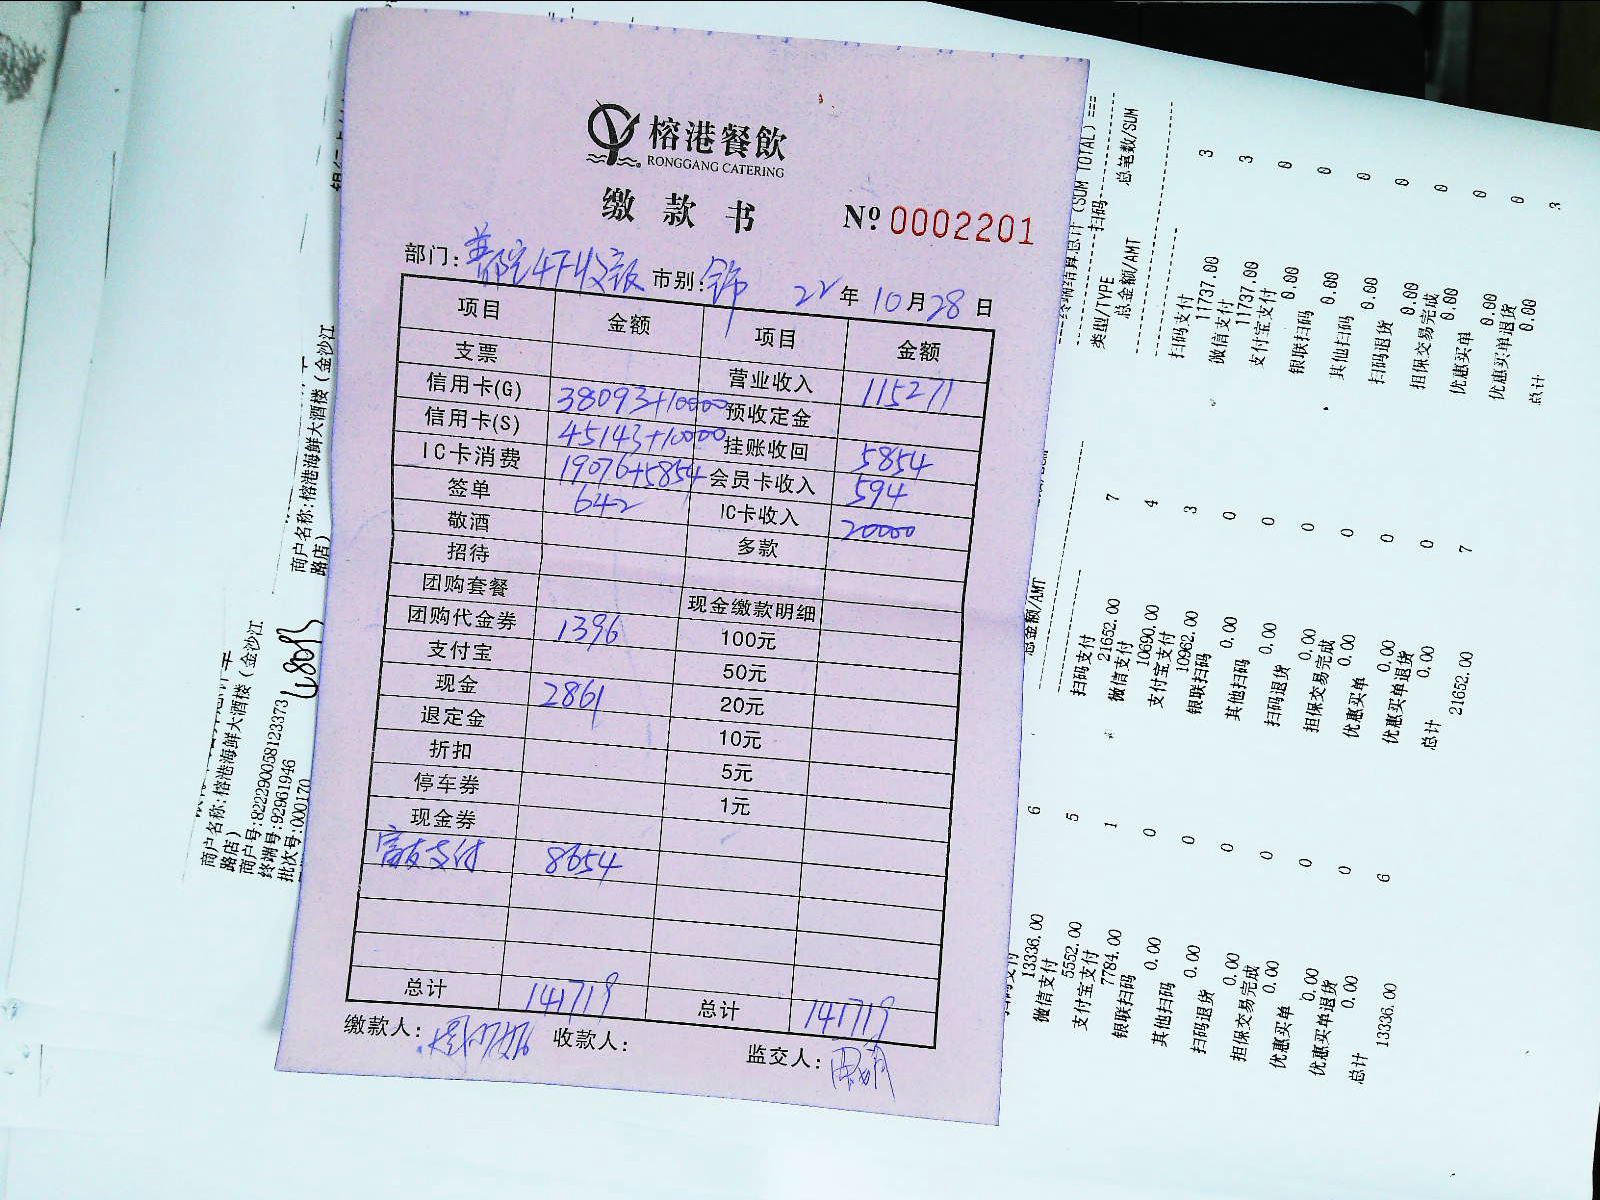 榕港餐飲
RONGGANG CATERING
缴款书 Nº 0002201
部门: 市别: 22年10月28日
项目 金额 项目 金额
支票 营业收入 115271
信用卡(G) 38093+10000 预收定金
信用卡(S) 45143+10000 挂账收回 5854
IC卡消费 19076+5854 会员卡收入 594
签单 642 IC卡收入 20000
敬酒 多款
招待
团购套餐 现金缴款明细
团购代金券 1396 100元
支付宝 50元
现金 2861 20元
退定金 10元
折扣 5元
停车券 1元
现金券
富友支付 8654
总计 141719 总计 141719
缴款人: 收款人: 监交人:
商户名称:榕港海鲜大酒楼(金沙江
路店)
商户名称:榕港海鲜大酒楼(金沙江
路店)
商户号:822290058123373
终端号:92961946
批次号:000170
48093
(SUM TOTAL) ===
类型/TYPE 扫码 总笔数/SUM
总金额/AMT
扫码支付 3
11737.00
微信支付 3
11737.00
支付宝支付 0
0.00
银联扫码 0
0.00
其他扫码 0
0.00
扫码退货 0
0.00
担保交易完成 0
0.00
优惠买单 0
0.00
优惠买单退货 0
0.00
总计 3
总金额/AMT
扫码支付 7
21652.00
微信支付 4
10690.00
支付宝支付 3
10962.00
银联扫码 0
0.00
其他扫码 0
0.00
扫码退货 0
0.00
担保交易完成 0
0.00
优惠买单 0
0.00
优惠买单退货 0
0.00
总计 7
21652.00
扫码支付 6
13336.00
微信支付 5
5552.00
支付宝支付 1
7784.00
银联扫码 0
0.00
其他扫码 0
0.00
扫码退货 0
0.00
担保交易完成 0
0.00
优惠买单 0
0.00
优惠买单退货 0
0.00
总计 6
13336.00